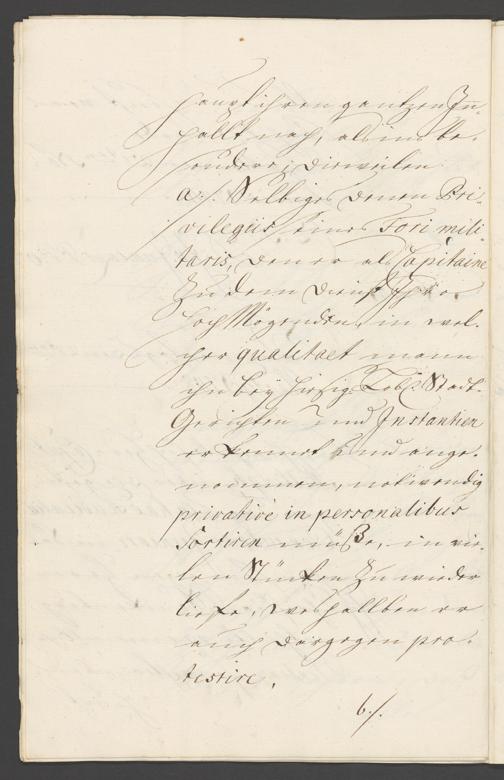 haupt ihren gantzen Jn-
hallt nach, als in be-
sondere; dieweilen
a./. Selbiges denen Pri-
vilegiis seines Fori mili-
taris, den er als Capitaine
Zu dem Dienst Ihro
Hoch Mögenden, in wel-
cher qualitaet mann
ihn bey hiesig. Löbl. Stadt-
Gerichten und Instantien
erkennet und ange-
nommen, notwendig
privative in personalibus
Sortiren müße, in vie-
len Stücken Zu wieder
lieffe, weshallben er
auch dargegen pro-
testire.
b./.